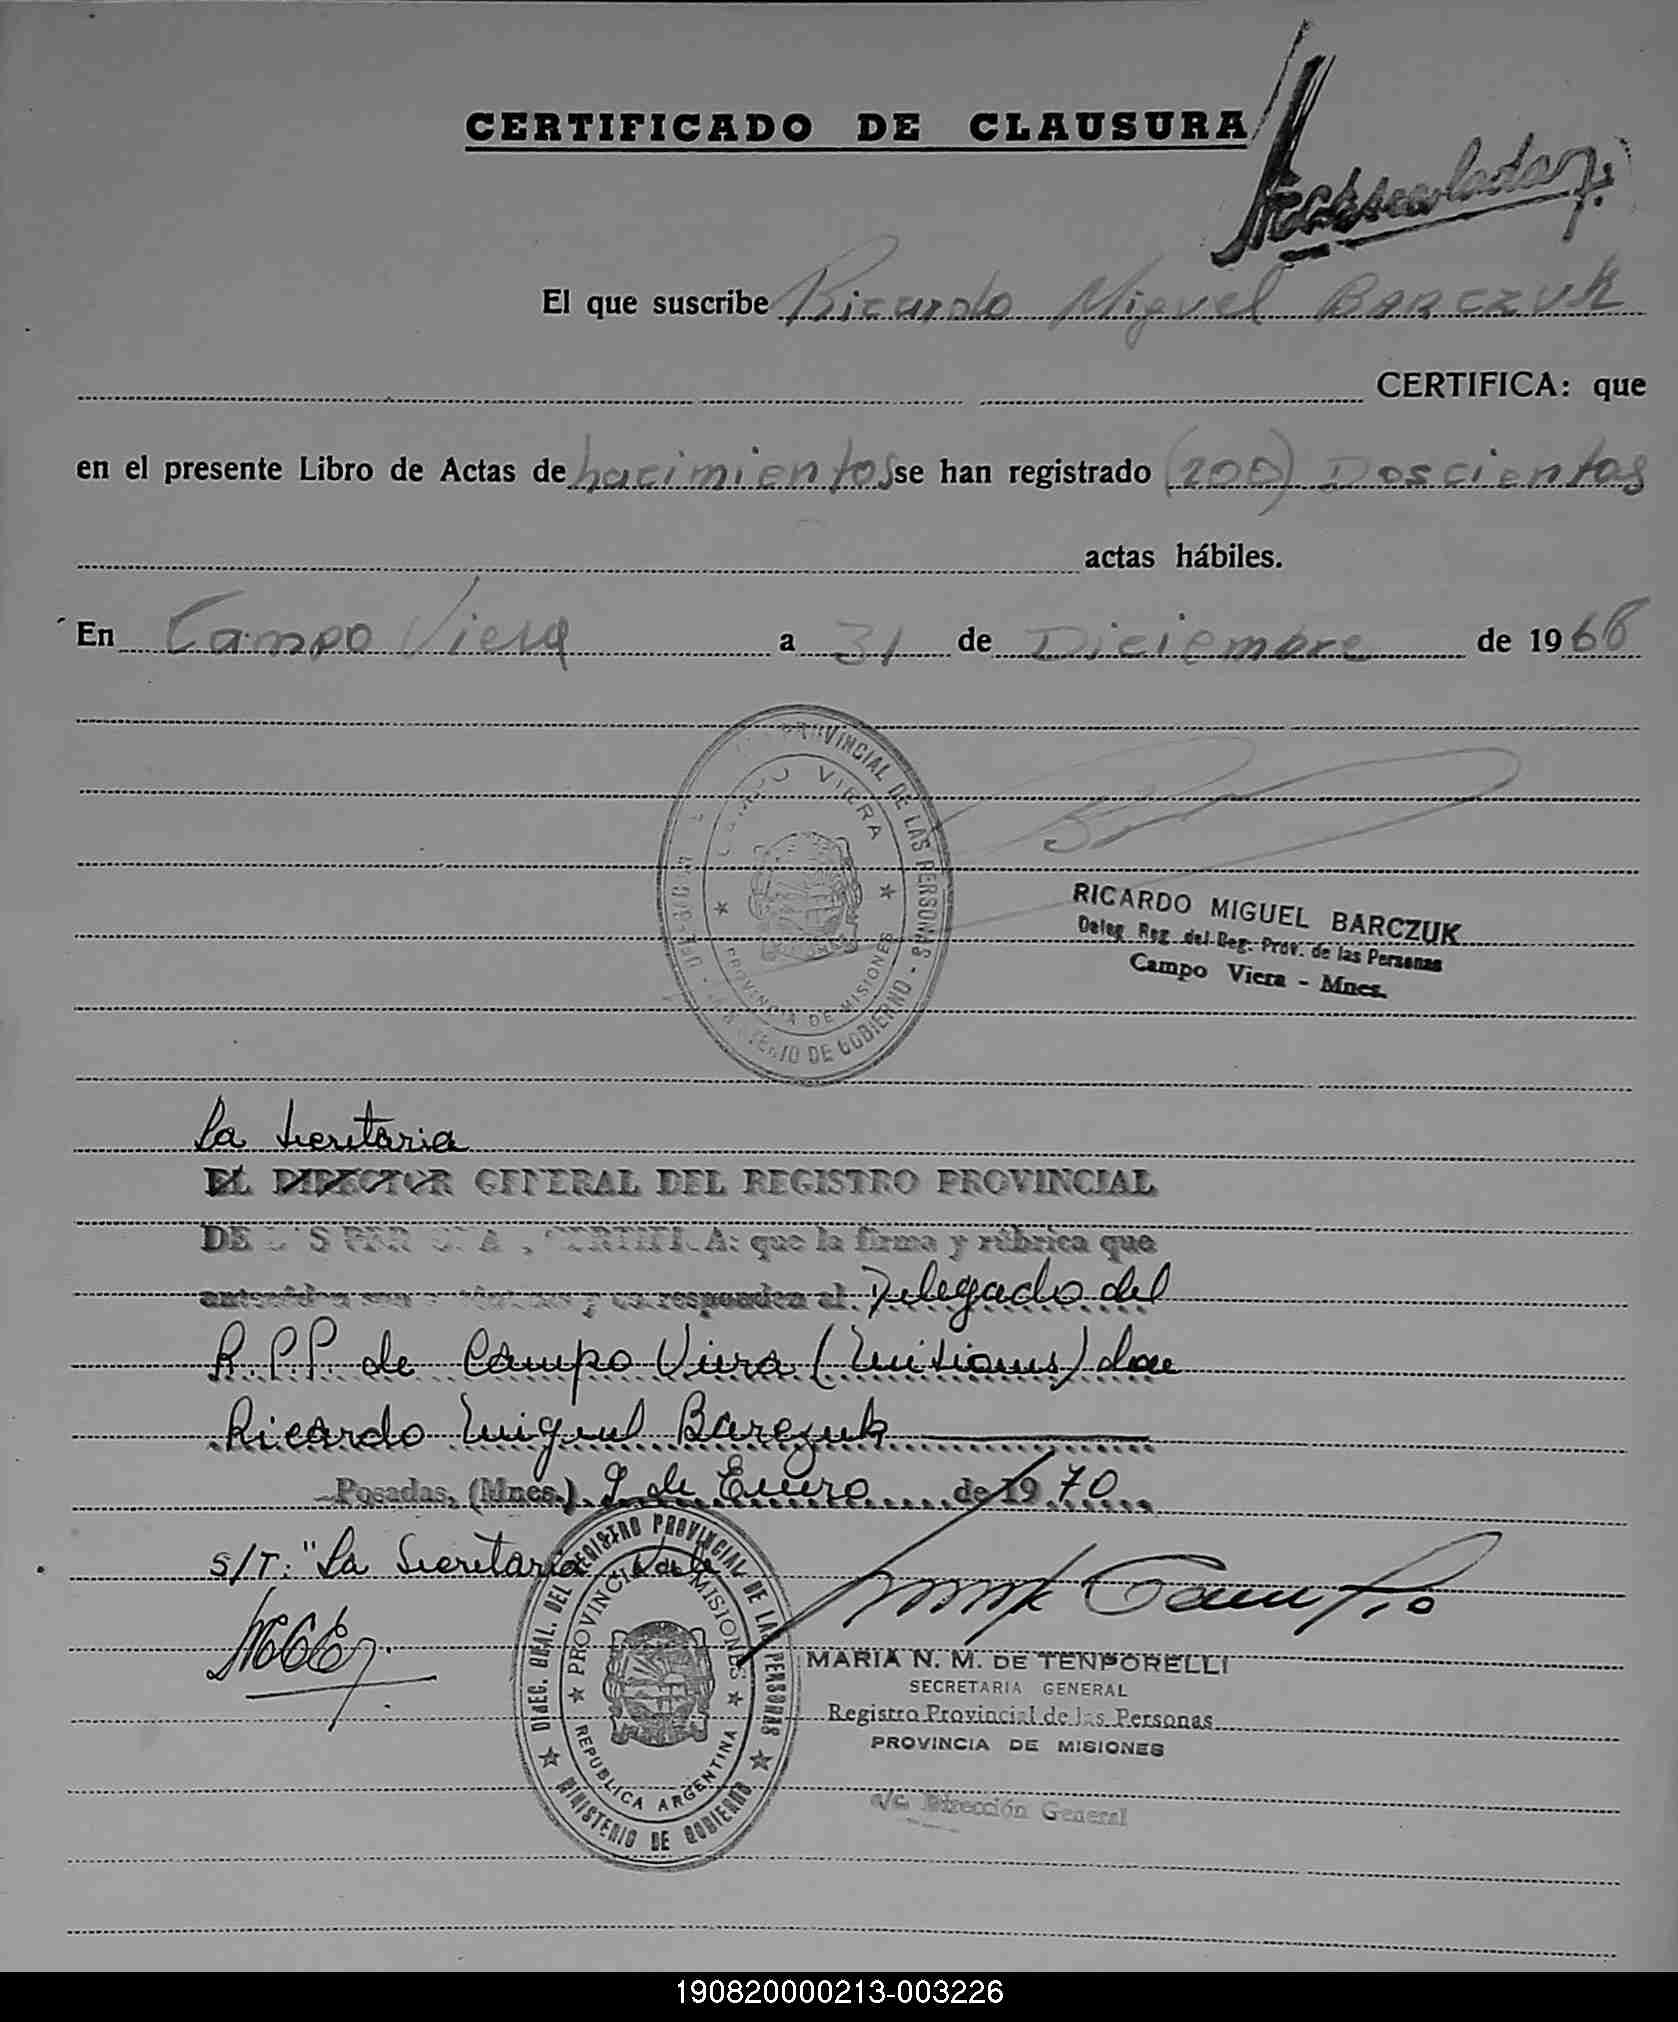 CERTIFICADO DE CLAUSURA
El que suscribe Ricardo Miguel BARCZUK
CERTIFICA: que
en el presente Libro de Actas de nacimientos se han registrado (200) Doscientos
actas hábiles.
En Campo Viera a 31 de Diciembre de 1968
PROVINCIAL DE LAS PERSONAS - MINISTERIO DE GOBIERNO
CAMPO VIERA
PROVINCIA DE MISIONES
RICARDO MIGUEL BARCZUK
Deleg. Reg. del Reg. Prov. de las Personas
Campo Viera - Mnes.
La Secretaria
EL DIRECTOR GENERAL DEL REGISTRO PROVINCIAL
DE LAS PERSONAS, CERTIFICA: que la firma y rúbrica que
anteceden son auténticas y corresponden al Delegado del
R.P.P. de Campo Viera (Misiones) don
Ricardo Miguel Barczuk
Posadas, (Mnes.) 9 de Enero de 1970
S/T: "La Secretaria Vale
DIREC. GRAL. DEL REGISTRO PROVINCIAL DE LAS PERSONAS
PROVINCIA DE MISIONES
REPUBLICA ARGENTINA
MINISTERIO DE GOBIERNO
MARIA N. M. DE TENPORELLI
SECRETARIA GENERAL
Registro Provincial de las Personas
PROVINCIA DE MISIONES
a/c. Dirección General
190820000213-003226